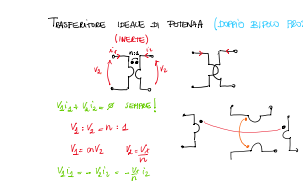 TRASFERITORE IDEALE DI POTENZA (DOPPIO BIPOLO
(INERTE)
i₁ n:1 i₂
V₁ V₂
V₁i₁ + V₂i₂ = 0 SEMPRE!
V₁ : V₂ = n : 1
V₁ = nV₂ V₂ = V₁/n
V₁i₁ = - V₂i₂ = - V₁/n i₂